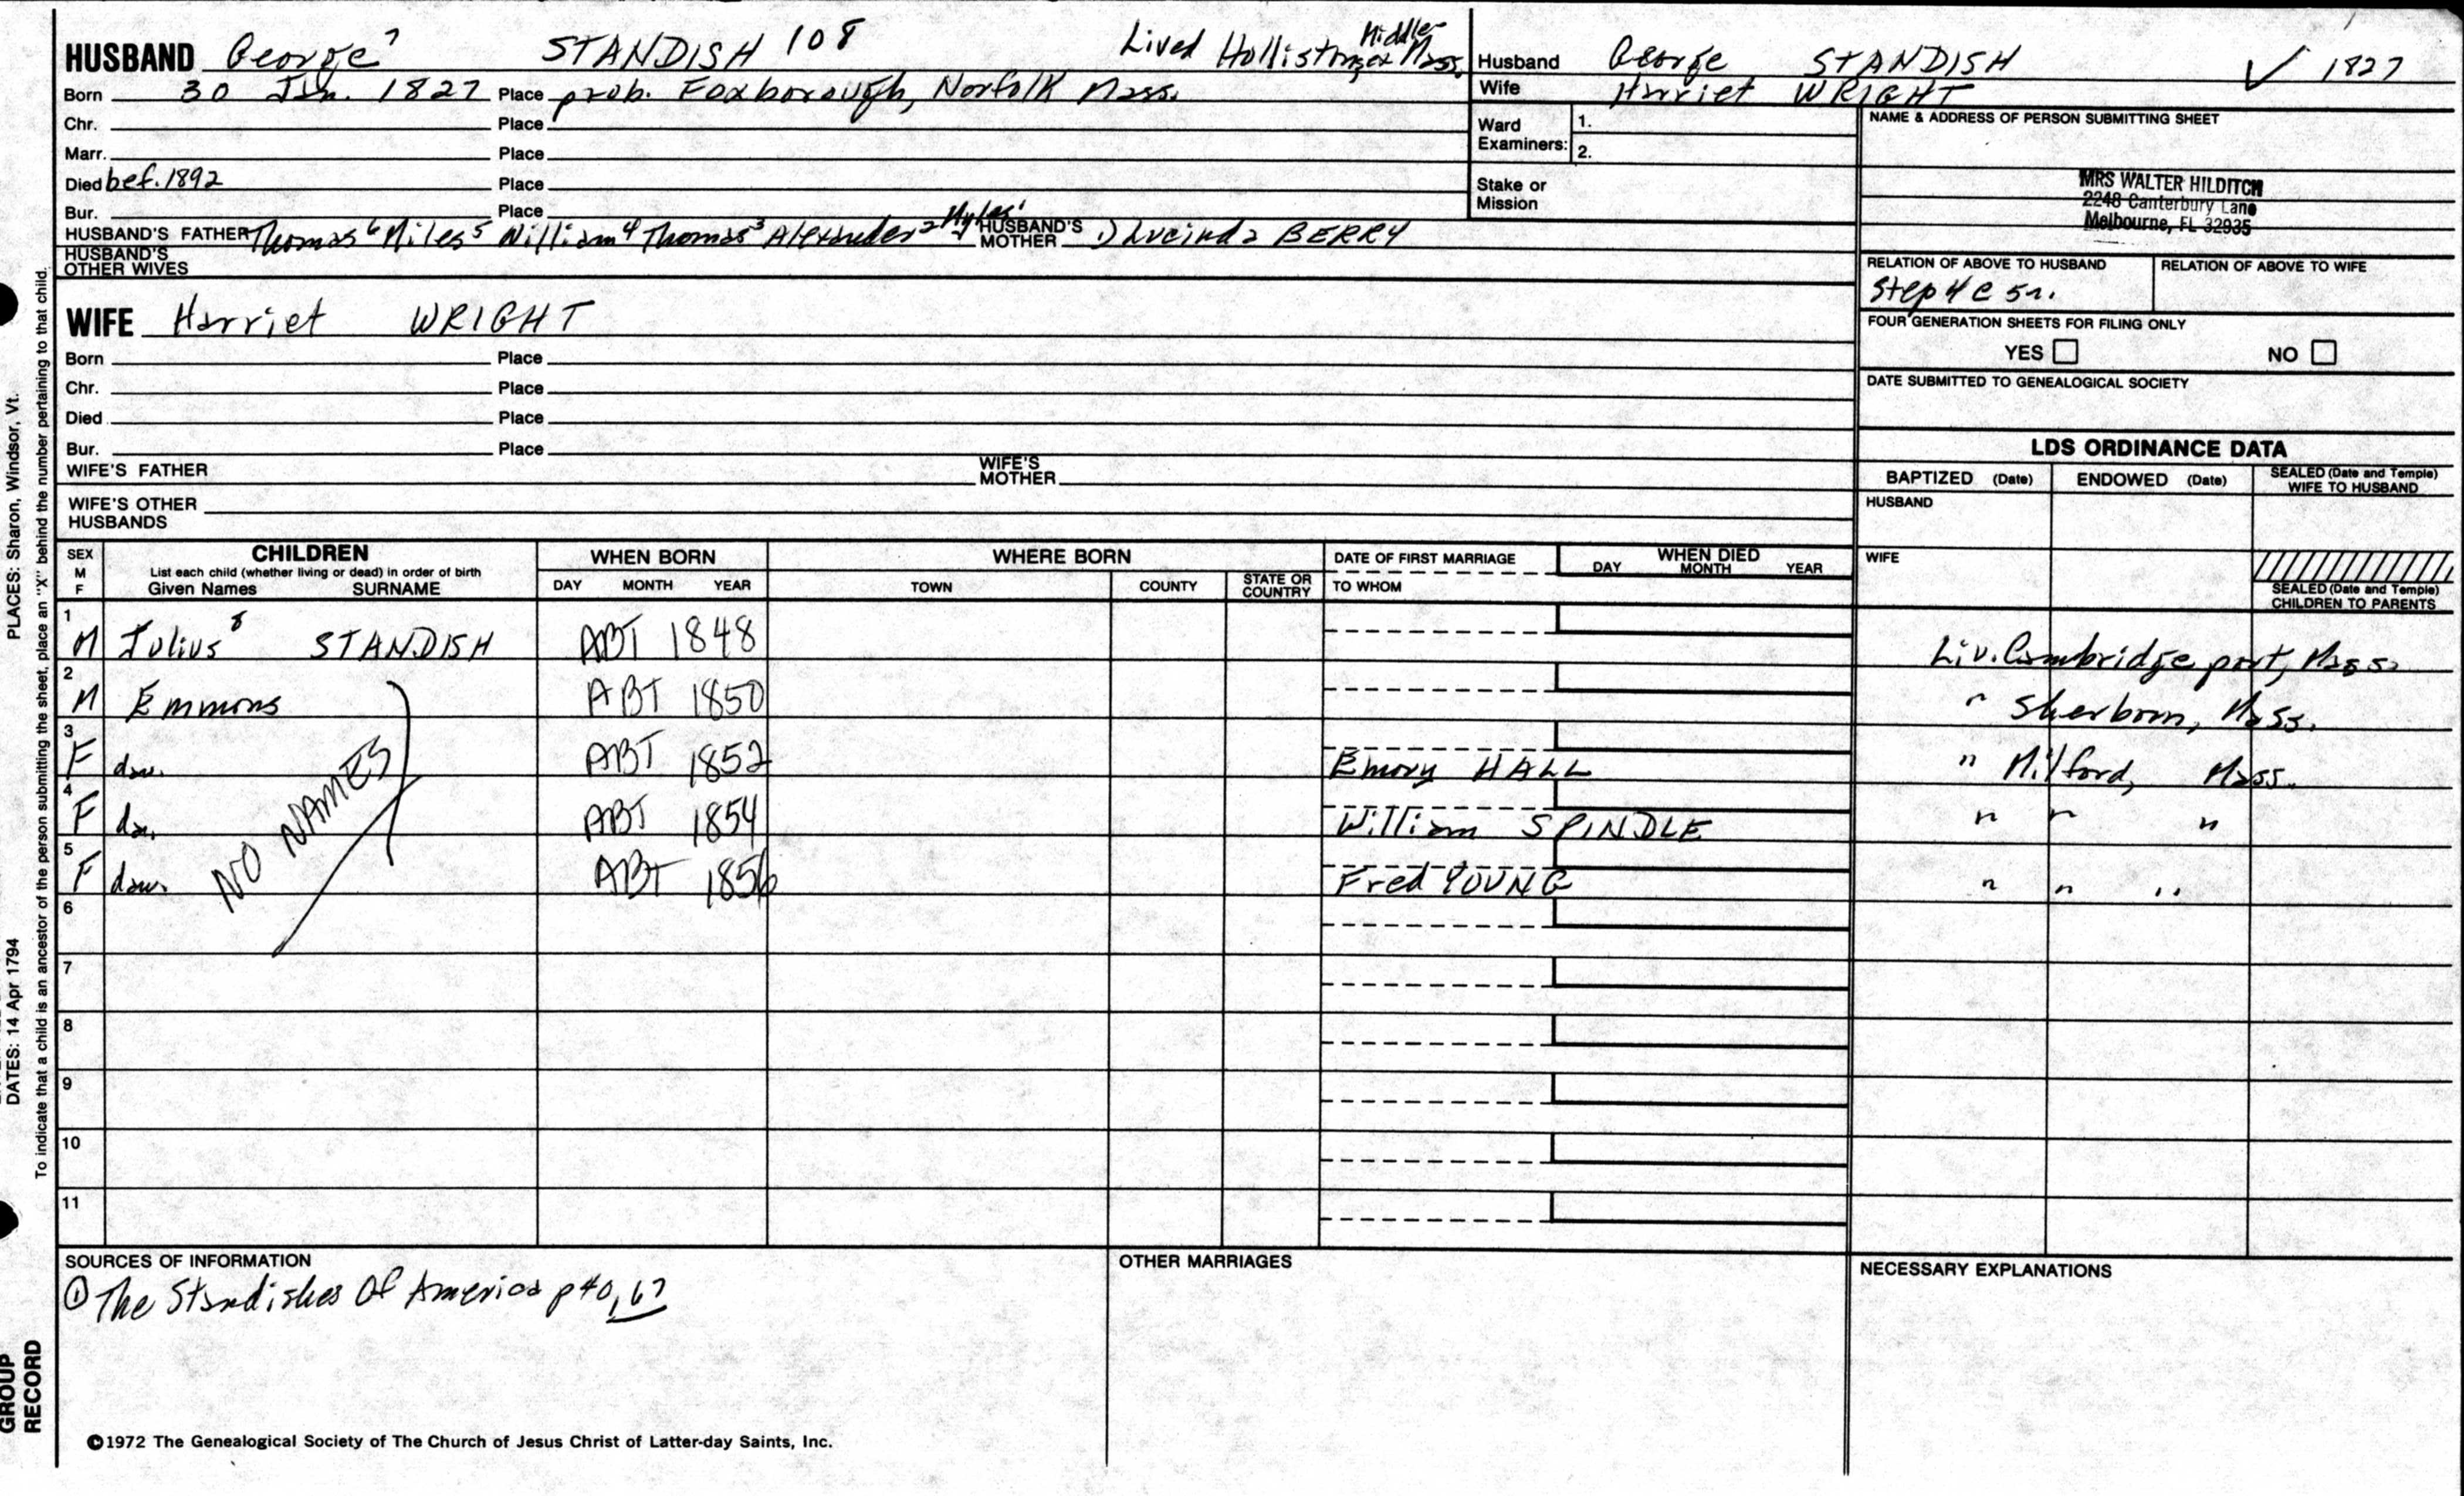 HUSBAND George 7 STANDISH 108 Lived Holliston Middlesex Mass.
Born 30 Jan. 1827 Place prob. Foxborough, Norfolk Mass.
Chr. Place
Marr. Place
Died bef. 1892 Place
Bur. Place
HUSBAND'S FATHER Thomas 6 Miles 5 William 4 Thomas 3 Alexander 2 Myles 1 HUSBAND'S MOTHER 1) Lucinda BERRY
HUSBAND'S OTHER WIVES
Husband George STANDISH ✓ 1827
Wife Harriet WRIGHT
Ward Examiners: 1.
2.
Stake or Mission
NAME & ADDRESS OF PERSON SUBMITTING SHEET
MRS WALTER HILDITCH
2248 Canterbury Lane
Melbourne, FL 32935
RELATION OF ABOVE TO HUSBAND RELATION OF ABOVE TO WIFE
Step 4 C 5 r.
FOUR GENERATION SHEETS FOR FILING ONLY
YES NO
DATE SUBMITTED TO GENEALOGICAL SOCIETY
WIFE Harriet WRIGHT
Born Place
Chr. Place
Died Place
Bur. Place
WIFE'S FATHER WIFE'S MOTHER
WIFE'S OTHER HUSBANDS
LDS ORDINANCE DATA
BAPTIZED (Date) ENDOWED (Date) SEALED (Date and Temple) WIFE TO HUSBAND
HUSBAND
WIFE
SEALED (Date and Temple) CHILDREN TO PARENTS
SEX M F CHILDREN WHEN BORN WHERE BORN DATE OF FIRST MARRIAGE WHEN DIED
List each child (whether living or dead) in order of birth
Given Names SURNAME DAY MONTH YEAR TOWN COUNTY STATE OR COUNTRY TO WHOM DAY MONTH YEAR
1 M Julius 8 STANDISH ABT 1848 Liv. Cambridge port, Mass.
2 M Emmons ABT 1850 " Sherborn, Mass.
3 F dau. ABT 1852 Emory HALL " Milford, Mass.
4 F da. ABT 1854 William SPINDLE " " "
5 F dau. ABT 1856 Fred YOUNG " " "
NO NAMES
6
7
8
9
10
11
SOURCES OF INFORMATION
① The Standishes Of America p 40, 67
OTHER MARRIAGES
NECESSARY EXPLANATIONS
©1972 The Genealogical Society of The Church of Jesus Christ of Latter-day Saints, Inc.
PLACES: Sharon, Windsor, Vt.
DATES: 14 Apr 1794
To indicate that a child is an ancestor of the person submitting the sheet, place an "X" behind the number pertaining to that child.
GROUP
RECORD